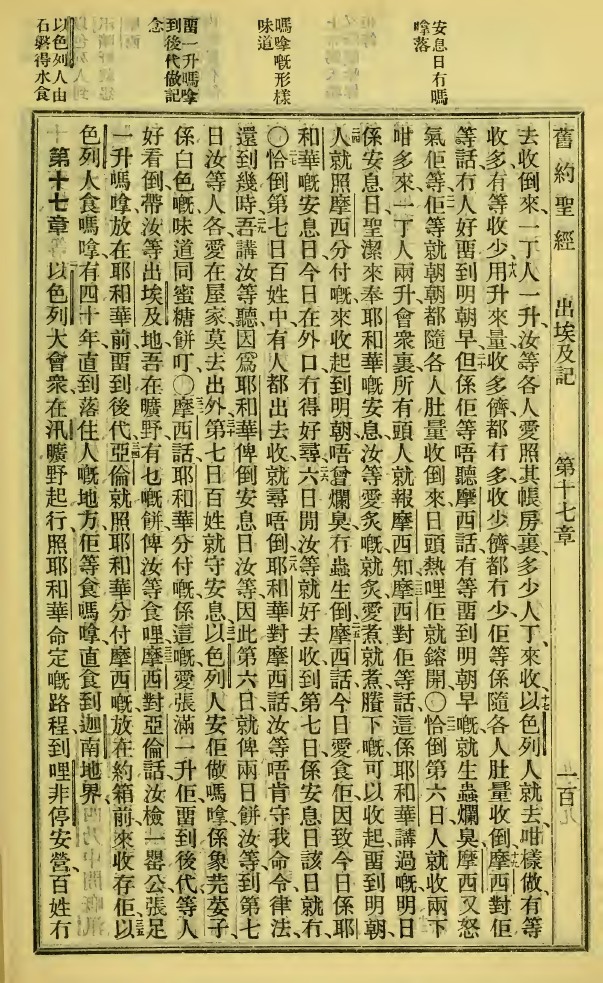 安息日冇嗎
嗱落
嗎嗱嘅形樣
味道
畱一升嗎嗱
到後代做記
念
以色列人由
石磐得水食
舊約聖經 出埃及記 第十七章 一百九
去收倒來、一丁人一升、汝等各人愛照其帳房裏、多少人丁、來收、十七以色列人就去咁樣做、有等
收多、有等收少、十八用升來量、收多儕都冇多、收少儕都冇少、佢等係隨各人肚量收倒、十九摩西對佢
等話、冇人好畱到明朝早、二十但係佢等唔聽摩西話、有等畱到明朝早嘅、就生蟲爛臭、摩西又怒
氣佢等、二一佢等就朝朝都隨各人肚量收倒來、日頭熱哩佢就鎔開、〇二二恰倒第六日、人就收兩下
咁多來、一丁人兩升、會衆裏所有頭人、就報摩西知、二三摩西對佢等話、這係耶和華講過嘅、明日
係安息日、聖潔來奉耶和華嘅安息、汝等愛炙嘅就炙、愛煮就煮、賸下嘅可以收起、畱到明朝、
二四人就照摩西分付嘅、來收起到明朝、唔曾爛臭、冇蟲生倒、二五摩西話、今日愛食佢、因致今日係耶
和華嘅安息日、今日在外口冇得好尋、二六六日間汝等就好去收、到第七日係安息日、該日就冇、
〇二七恰倒第七日、百姓中有人都出去收、就尋唔倒、二八耶和華對摩西話、汝等唔肯守我命令律法、
還到幾時、二九吾講汝等聽、因爲耶和華俾倒安息日汝等、因此第六日就俾兩日餅汝等、到第七
日汝等人各愛在屋家、莫去出外、三十第七日百姓就守安息、三一以色列人安佢做嗎嗱、係象芫荽子、
係白色嘅、味道同蜜糖餅叮、〇三二摩西話、耶和華分付嘅係這嘅、愛張滿一升佢、畱到後代等人
好看倒、帶汝等出埃及地、吾在曠野、有乜嘅餅俾汝等食哩、三三摩西對亞倫話、汝檢一罌公、張足
一升嗎嗱、放在耶和華前、畱到後代、三四亞倫就照耶和華分付摩西嘅、放在約箱前、來收存佢、三五以
色列人食嗎嗱、有四十年、直到落住人嘅地方、佢等食嗎嗱、直食到迦南地界、
第十七章 一以色列大會衆、在汛曠野起行、照耶和華命定嘅路程、到哩非停安營、百姓冇